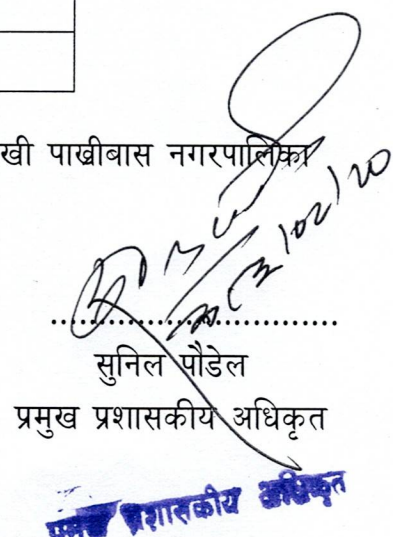 खी पाख्रीबास नगरपालिका
सुनिल पौडेल
प्रमुख प्रशासकीय अधिकृत
प्रमुख प्रशासकीय अधिकृत